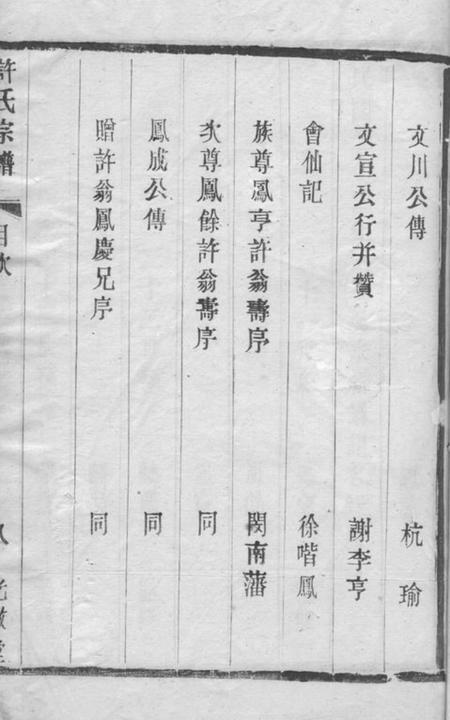 文川公傳 杭瑜
文宣公行并贊 謝李亨
會仙記 徐喈鳳
族尊鳳亨許翁壽序 閔南藩
次尊鳳餘許翁壽序 同
鳳成公傳 同
贈許翁鳳慶兄序 同
許氏宗譜 目次 八